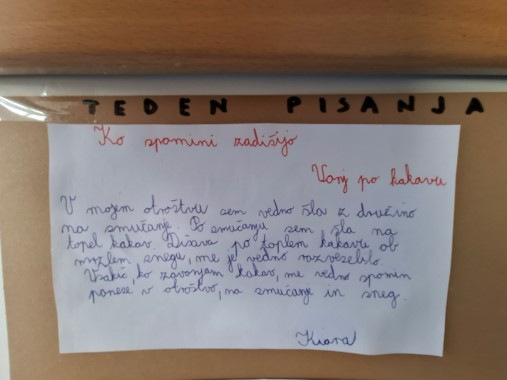 TEDEN PISANJA
Ko spomini zadišijo
Vonj po kakavu
V mojem otroštvu sem vedno šla z družino
na smučanje. Po smučanju sem šla na
topel kakav. Dišava po toplem kakavu ob
mrzlem snegu, me je vedno razveselilo
Vsakič, ko zavonjam kakav, me vedno spomin
ponese v otroštvo, na smučanje in sneg.
Kiara